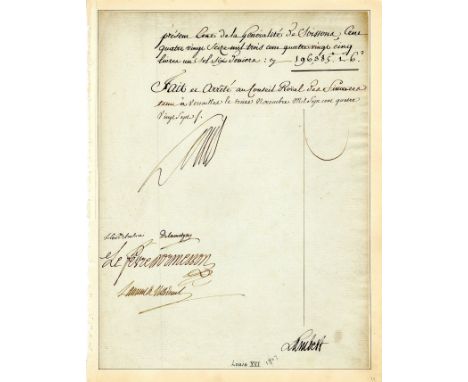 présent Etat de la Généralité de Soissons, Cent
quatre vingt Seize mil trois cent quatre vingt cinq
livres un sol six deniers : cy 196385. 1. 6.
Fait et Arrêté au Conseil Royal des Finances
tenu à Versailles le treize Novembre Mil Sept cent quatre
Vingt Sept /.
Louis
Le fevre dormesson
Lambert
Louis XVI